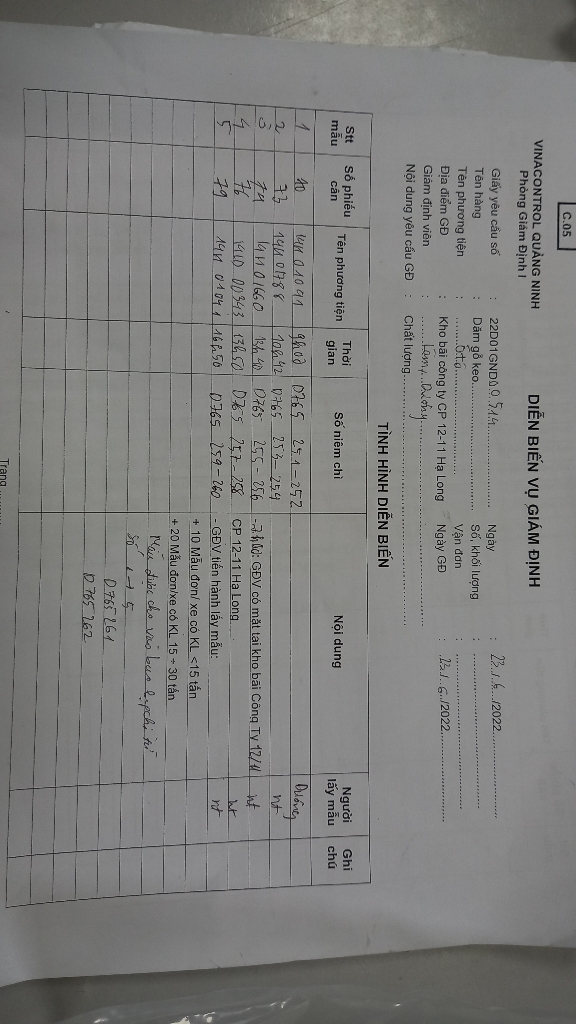 C.05
VINACONTROL QUẢNG NINH
Phòng Giám Định I
DIỄN BIẾN VỤ GIÁM ĐỊNH
Giấy yêu cầu số : 22D01GNDĐ0.5.14 Ngày : 23./.6../2022
Tên hàng : Dăm gỗ keo Số, khối lượng :
Tên phương tiện : Ôtô Vận đơn :
Địa điểm GĐ : Kho bãi công ty CP 12-11 Hạ Long Ngày GĐ : 23./.6../2022
Giám định viên : Dương
Nội dung yêu cầu GĐ : Chất lượng
TÌNH HÌNH DIỄN BIẾN
Stt mẫu Số phiếu cân Tên phương tiện Thời gian Số niêm chì Nội dung Người lấy mẫu Ghi chú
1 10 14N 01091 9h00 D765 251-252 Dương
2 73 14N 01788 10h42 D765 253-254 nt
3 74 14N 01660 13h40 D765 255-256 GĐV có mặt tại kho bãi Công Ty 12/11 nt
4 76 00343 13h50 D765 257-258 CP 12-11 Hạ Long nt
5 79 14N 01041 16h50 D765 259-260 - GĐV tiến hành lấy mẫu: nt
+ 10 Mẫu đơn/ xe có KL <15 tấn
+ 20 Mẫu đơn/xe có KL 15 ÷ 30 tấn
Mẫu được cho vào bao kẹp chì từ
số 1 → 5
D765261
D765262
Trang